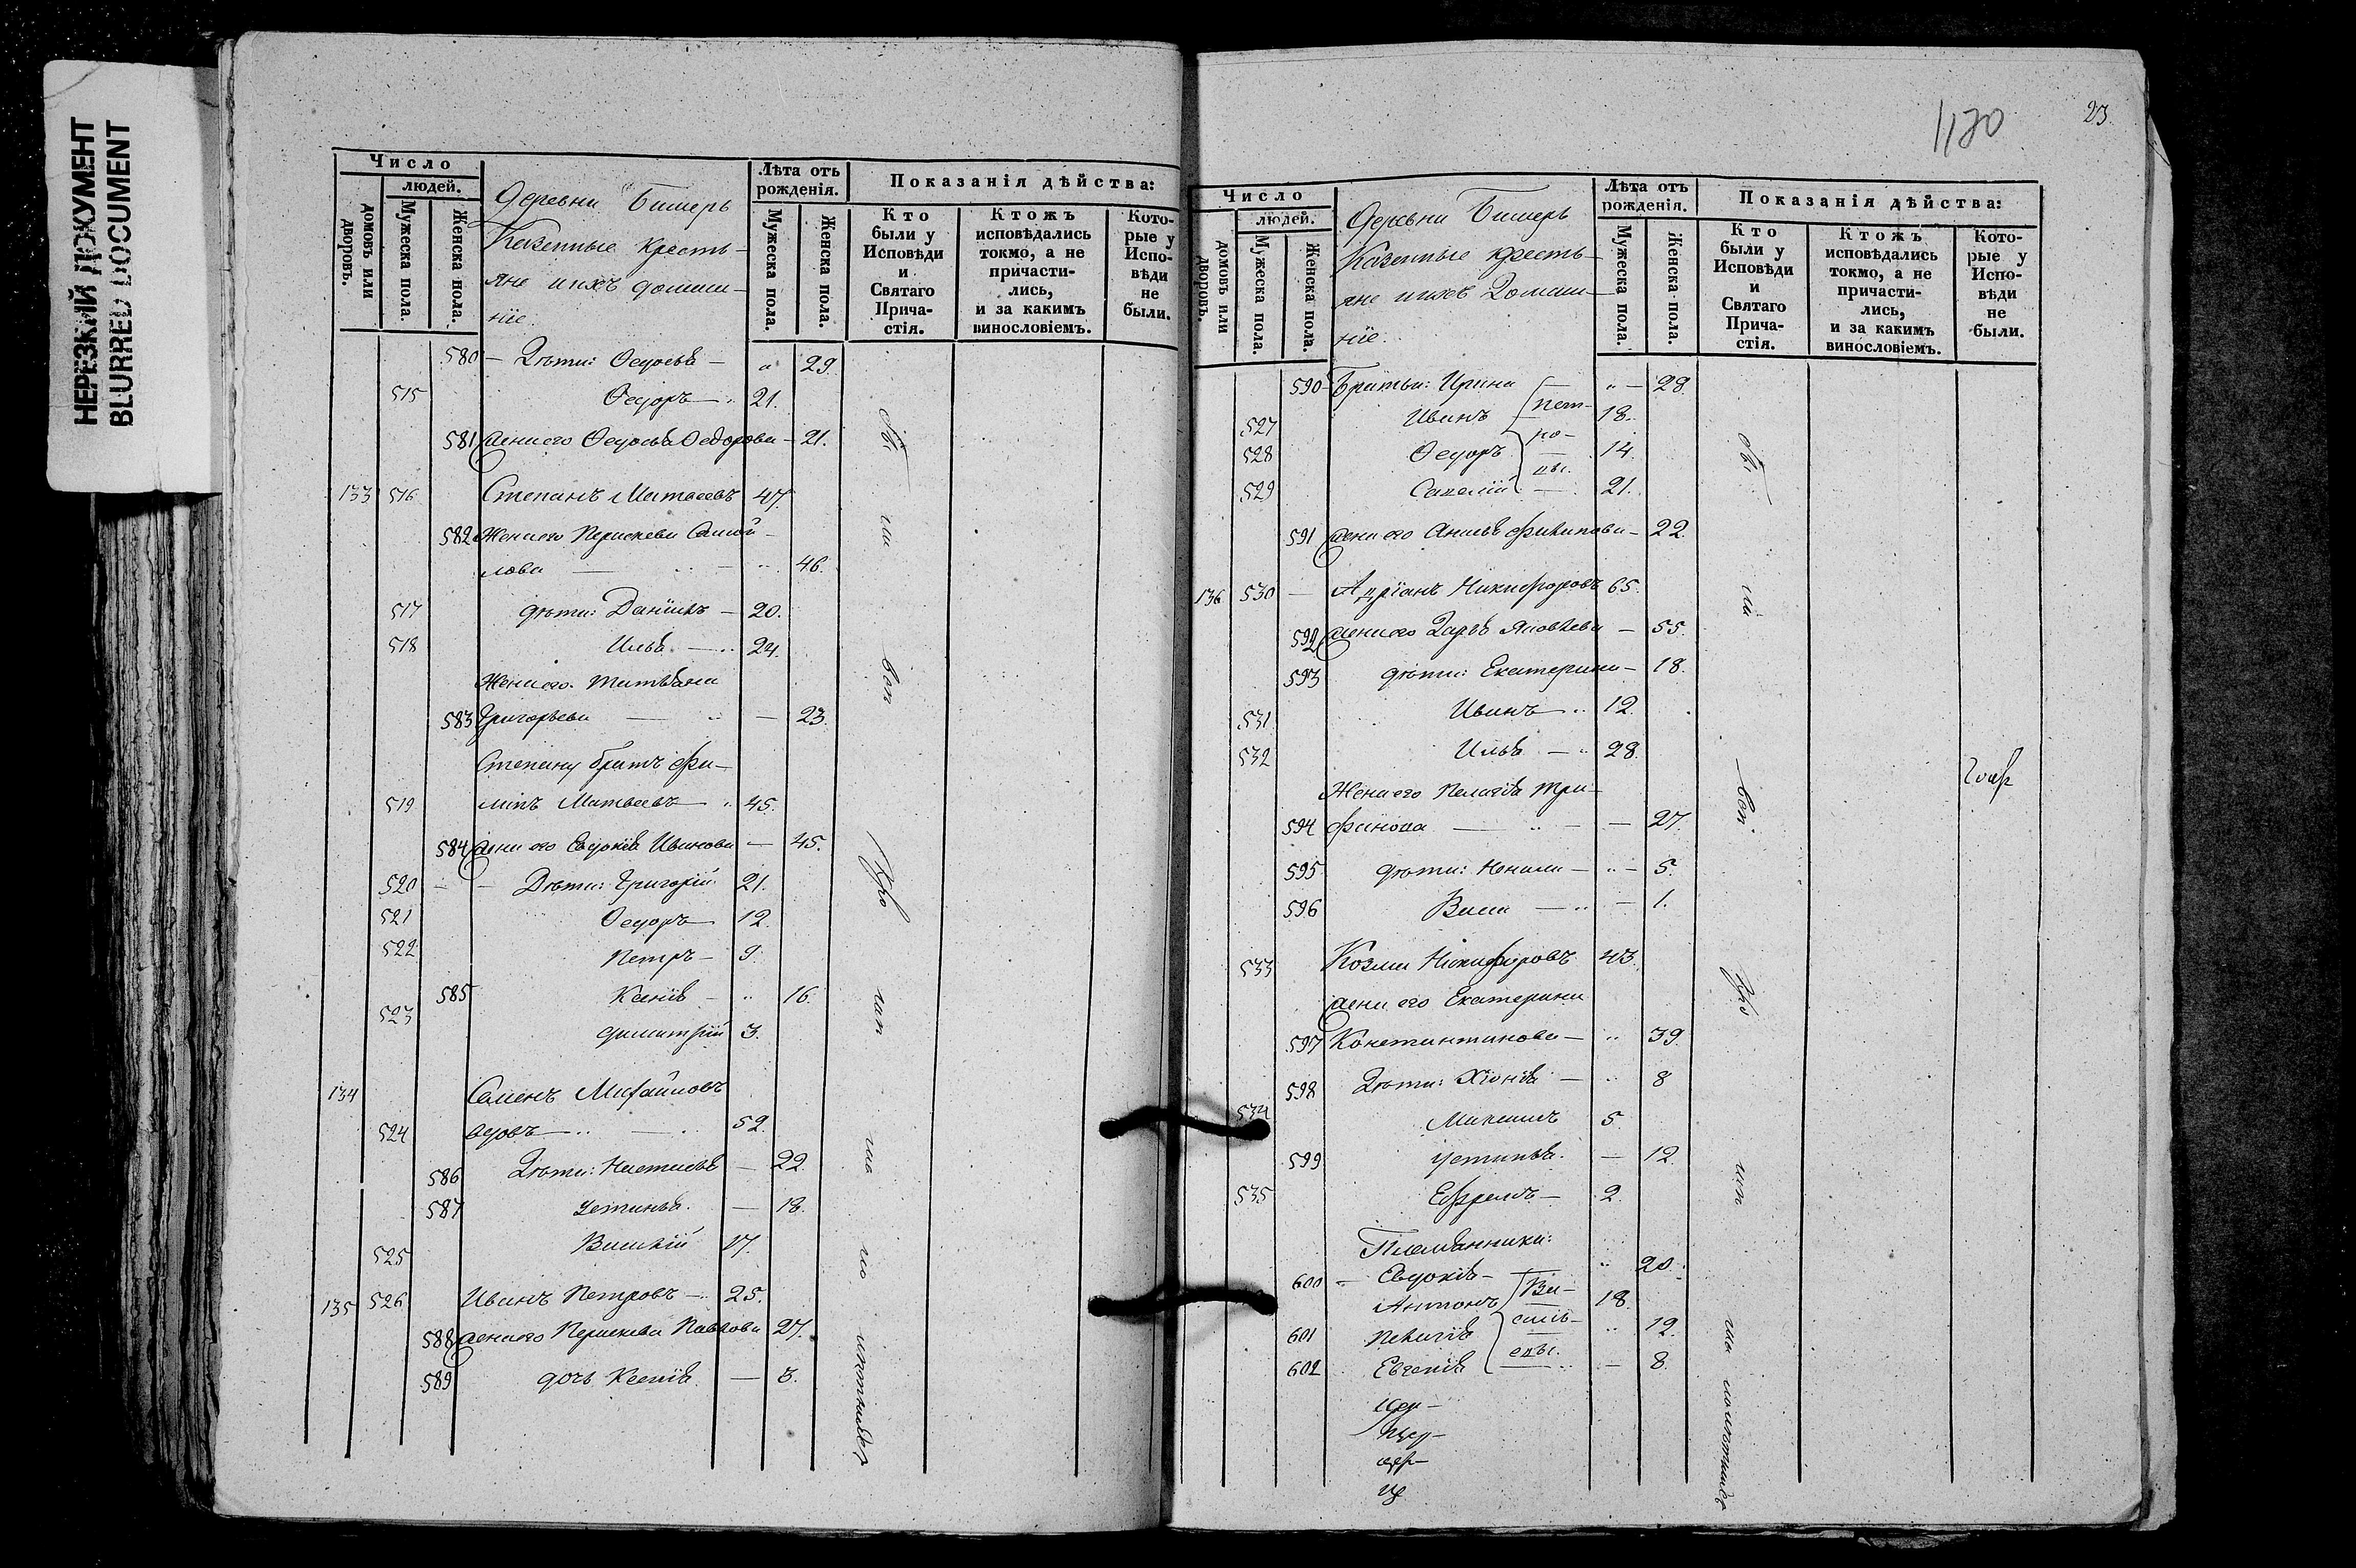 НЕРЕЗКИЙ ДОКУМЕНТ
BLURRED DOCUMENT
Число
людей.
домовъ или дворовъ.
Мужеска пола.
Женска пола.
Деревни Бишерь
Казенные кресть-
яне и ихъ домаш-
ніе.
Лѣта отъ рожденія.
Мужеска пола.
Женска пола.
Показанія дѣйства:
Кто были у Исповѣди и Святаго Прича-стія.
Ктожъ исповѣдались токмо, а не причасти-лись, и за какимъ винословіемъ.
Кото-рые у Испо-вѣди не были.
580 — Дѣти: Федосья — " 29.
515 Федоръ — " 21.
581 Жена его Федосья Федорова — 21.
133 516 Степанъ Матвеевъ 47.
582 Жена его Параскева Самой-
лова — " 46.
517 дѣти: Даніилъ — 20.
518 Илья — " 24.
Жена его Татьяна
583 Григорьева — " — 23.
Степану братъ Фи-
519 липъ Матвеевъ " 45.
584 Жена его Евдокія Иванова — 45.
520 — — Дѣти: Григорій 21.
521 Федоръ — 12.
522 Петръ — 9.
585 Ксенія — " 16.
523 Димитрій 3.
134 Семенъ Михайловъ
524 вдовъ — " — " 52.
586 Дѣти: Настасья — 22.
587 Устинья. — 18.
525 Василій 17.
135 526 Иванъ Петровъ — " 25.
588 Жена его Параскева Павлова 27.
589 дочь Ксенія — 3.
бы
ли
вси
кро
мѣ
мало
лѣтныхъ
1120
23
Число
людей.
домовъ или дворовъ.
Мужеска пола.
Женска пола.
Деревни Бишерь
Казенные кресть-
яне и ихъ Домаш-
ніе.
Лѣта отъ рожденія.
Мужеска пола.
Женска пола.
Показанія дѣйства:
Кто были у Исповѣди и Святаго Прича-стія.
Ктожъ исповѣдались токмо, а не причасти-лись, и за какимъ винословіемъ.
Кото-рые у Испо-вѣди не были.
590 Братья: Ирина — " — 28.
527 Иванъ Пет- 18.
528 Федоръ ро- 14.
529 Савелій вы. — 21.
591 Жена его Анисья Филипова — 22.
136 530 — Адріанъ Никифоровъ 65.
592 Жена его Дарья Яковлева — 55.
593 дѣти: Екатерина — 18.
531 Иванъ " 12.
532 Илья — " 28.
Жена его Пелагія Три-
594 фанова — " — — 27.
595 дѣти: Ненила — " — 5.
596 Васа — " — 1.
533 Козма Никифоровъ 43.
Жена его Екатерина
597 Константинова — " 39.
598 Дѣти: Хіонія — " 8
534 Максимъ 5.
599 Устинья. — 12.
535 Ефремъ — 2.
Племянники:
600 — Евдокія — " 20.
Антонъ Ва- 18.
601 Пелагія силь- " 12.
602 Евгенія евы. " — 8.
бы
ли
вси
кро